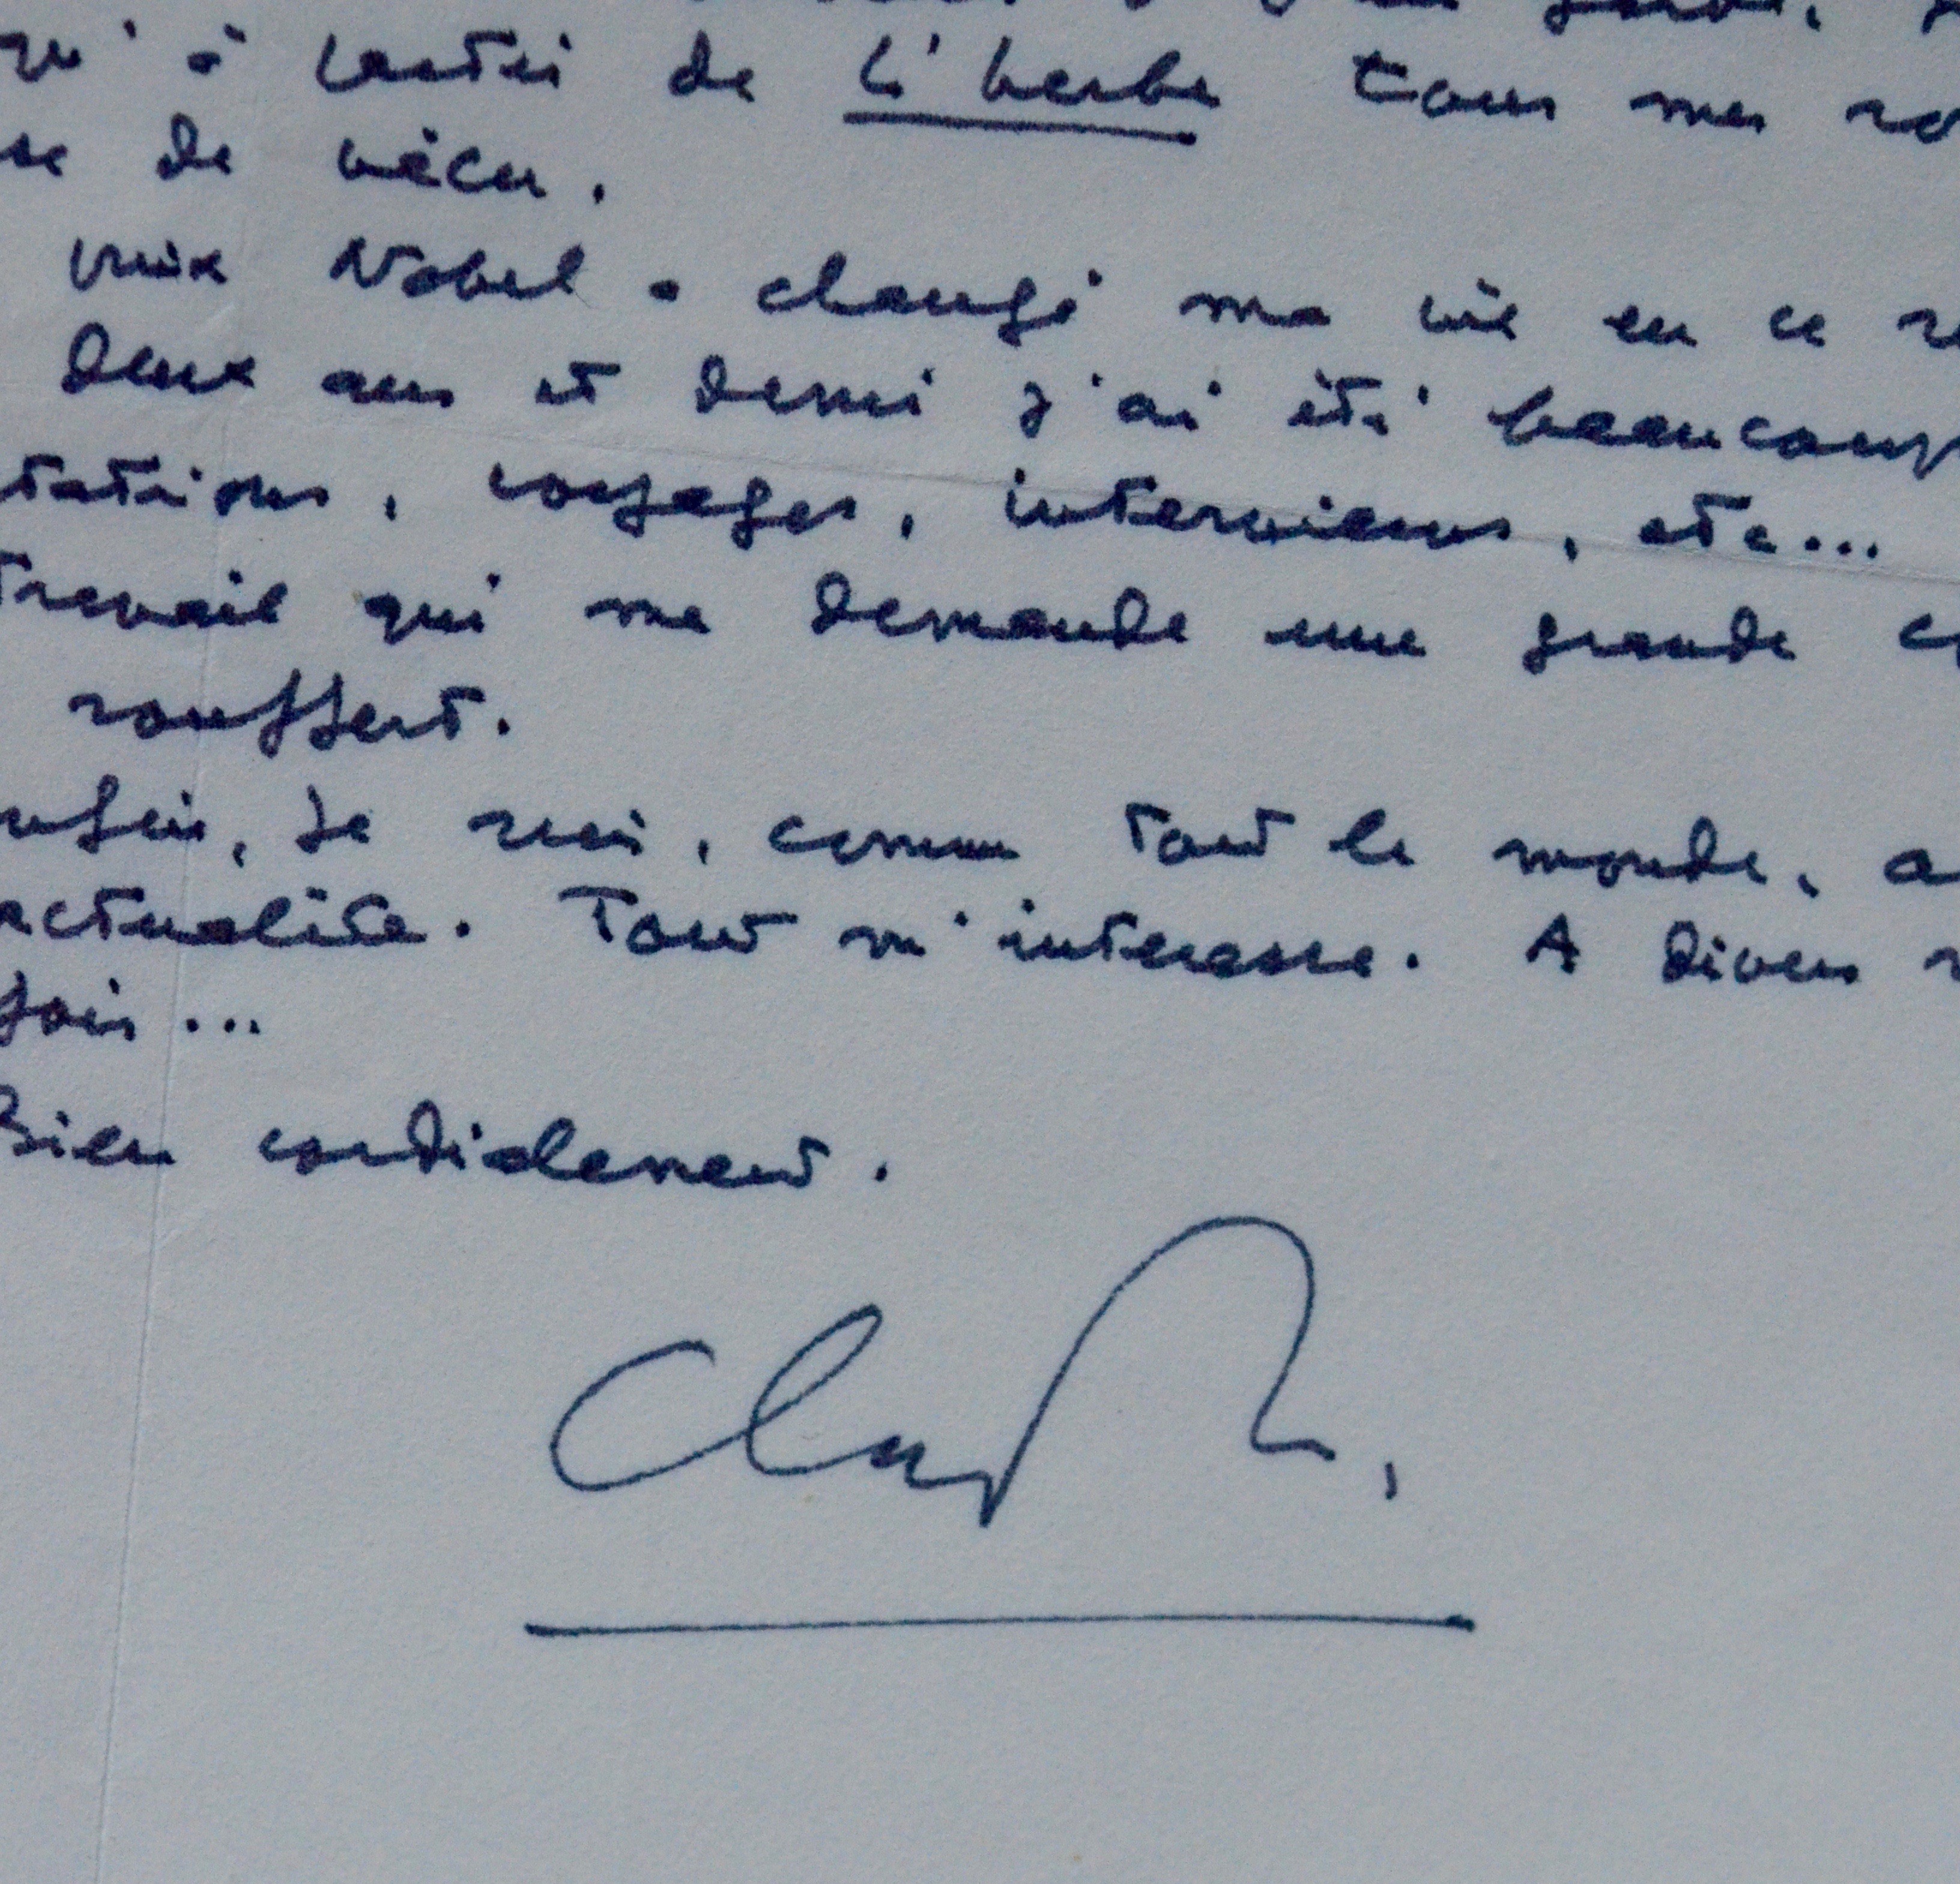 qu'à partir de L'herbe tous mes ro
se de vécu.
prix Nobel a changé ma vie en ce se
deux ans et demi j'ai été beaucoup
tations, voyages, interviews, etc...
travail qui me demande une grande co
souffert.
nfin, je suis, comme tout le monde, a
actualité. Tout m'intéresse. A divers
fois...
Bien cordialement.